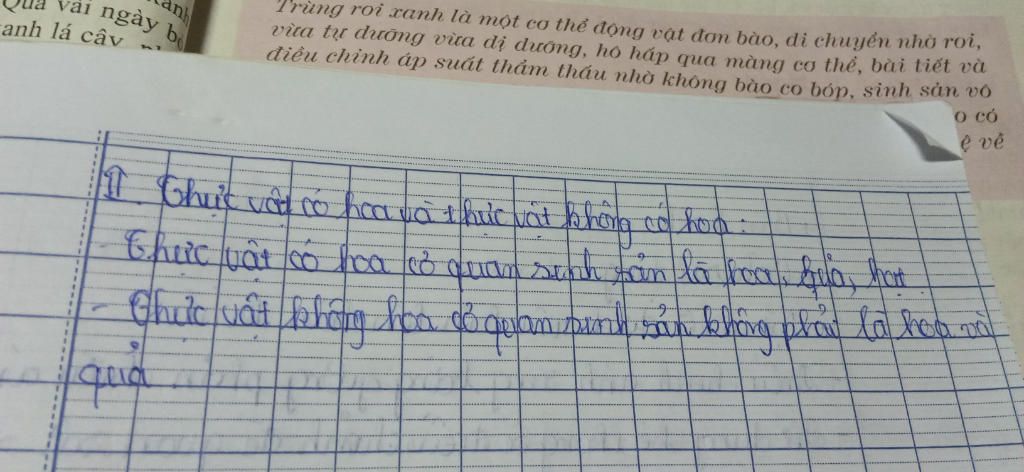 Qua vài ngày b
xanh
anh lá cây
Trùng roi xanh là một cơ thể động vật đơn bào, di chuyển nhờ roi,
vừa tự dưỡng vừa dị dưỡng, hô hấp qua màng cơ thể, bài tiết và
điều chỉnh áp suất thẩm thấu nhờ không bào co bóp, sinh sản vô
o có
ệ về
II. Thực vật có hoa và thực vật không có hoa:
- Thực vật có hoa có quan sinh sản là hoa, quả, hạt
- Thực vật không hoa có quan sinh sản không phải là hoa và
quả